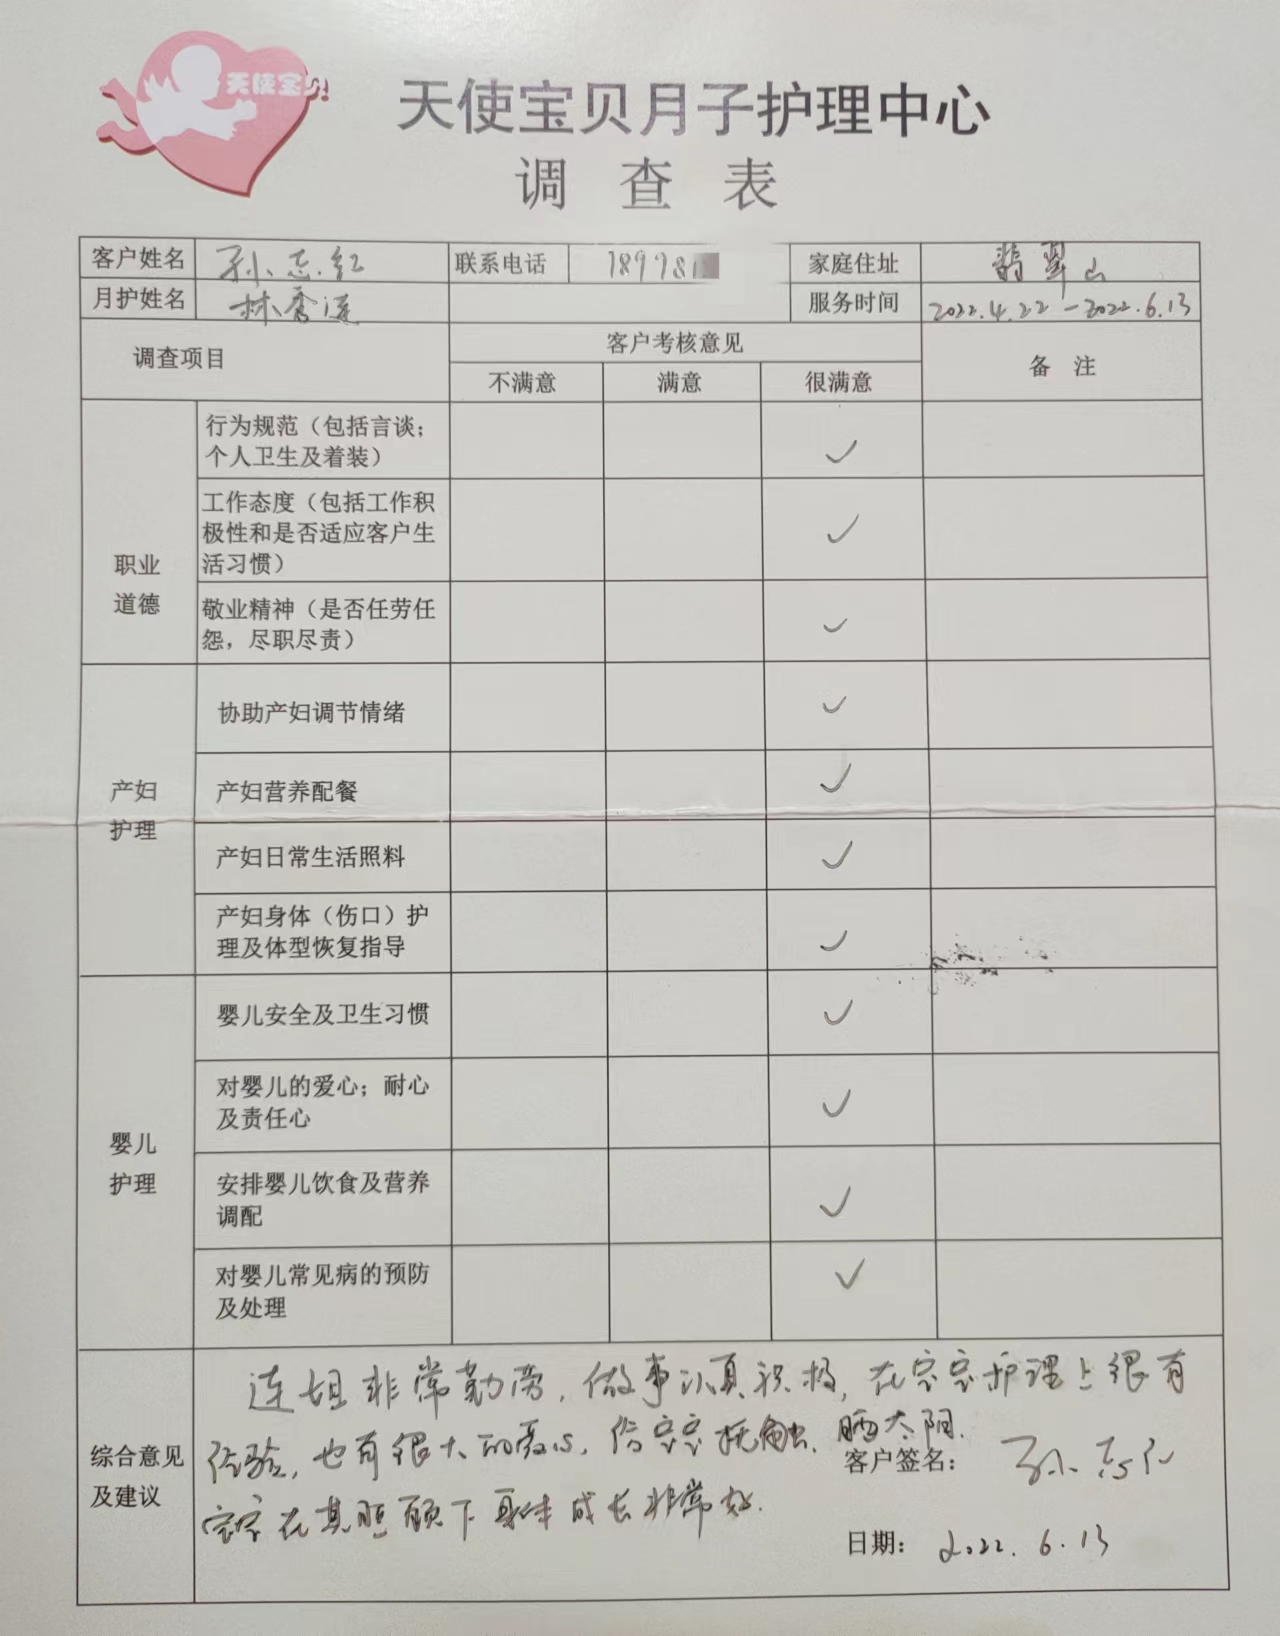 天使宝贝
天使宝贝月子护理中心
调 查 表
客户姓名 孙志红 联系电话 189981 家庭住址 翡翠山
月护姓名 林秀莲 服务时间 2022.4.22-2022.6.13
调查项目 客户考核意见 备 注
不满意 满意 很满意
职业
道德
行为规范（包括言谈；
个人卫生及着装）
✓
工作态度（包括工作积
极性和是否适应客户生
活习惯）
✓
敬业精神（是否任劳任
怨，尽职尽责）
✓
产妇
护理
协助产妇调节情绪 ✓
产妇营养配餐 ✓
产妇日常生活照料 ✓
产妇身体（伤口）护
理及体型恢复指导
✓
婴儿
护理
婴儿安全及卫生习惯 ✓
对婴儿的爱心；耐心
及责任心
✓
安排婴儿饮食及营养
调配
✓
对婴儿常见病的预防
及处理
✓
综合意见
及建议
连姐非常勤劳，做事认真积极，在宝宝护理上很有
经验，也有很大的爱心，给宝宝抚触、晒太阳.
宝宝在其照顾下身体成长非常好.
客户签名： 孙志红
日期： 2022.6.13